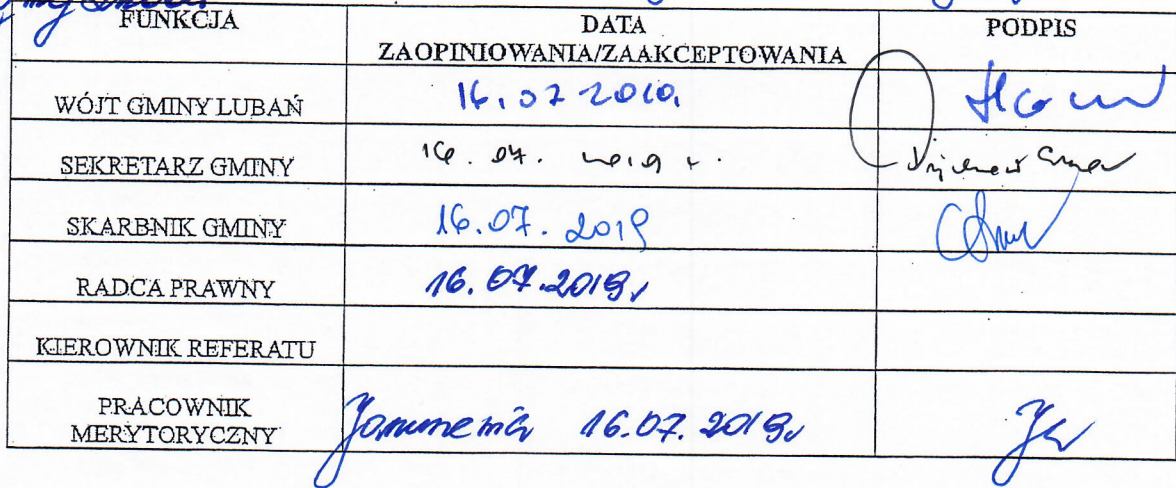 FUNKCJA DATA PODPIS
ZAOPINIOWANIA/ZAAKCEPTOWANIA
WÓJT GMINY LUBAŃ 16.07 2019.
SEKRETARZ GMINY 16.07. 2019 r.
SKARBNIK GMINY 16.07.2019
RADCA PRAWNY 16.07.2019r
KIEROWNIK REFERATU
PRACOWNIK
MERYTORYCZNY 16.07.2019r